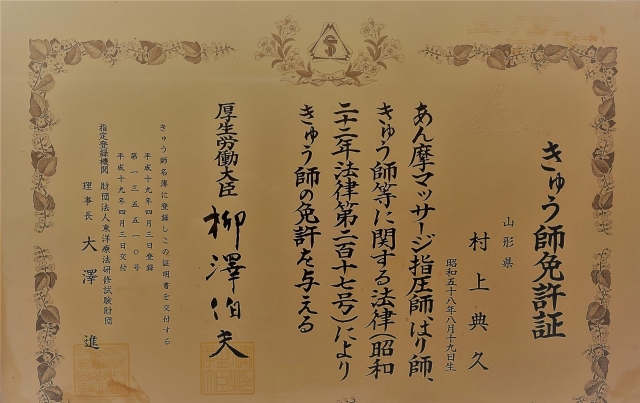 きゅう師免許証
山形県
村上典久
昭和五十八年八月十九日生
あん摩マッサージ指圧師、はり師、
きゅう師等に関する法律(昭和
二十二年法律第二百十七号)により
きゅう師の免許を与える
厚生労働大臣 柳澤伯夫
きゅう師名簿に登録しこの証明書を交付する
平成十九年四月三日登録
第一三五五一〇号
平成十九年四月三日交付
指定登録機関 財団法人東洋療法研修試験財団
理事長 大澤進